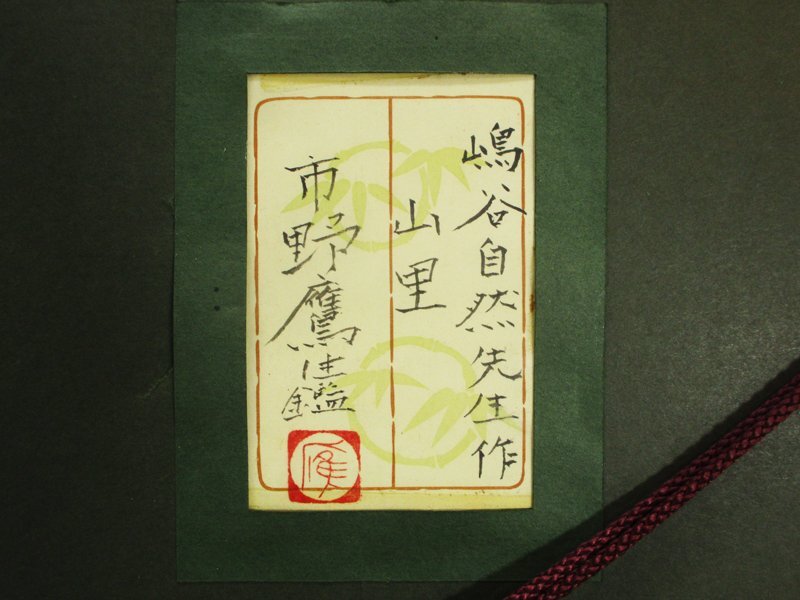 嶋谷自然先生作
山里
市野鷹生鑑